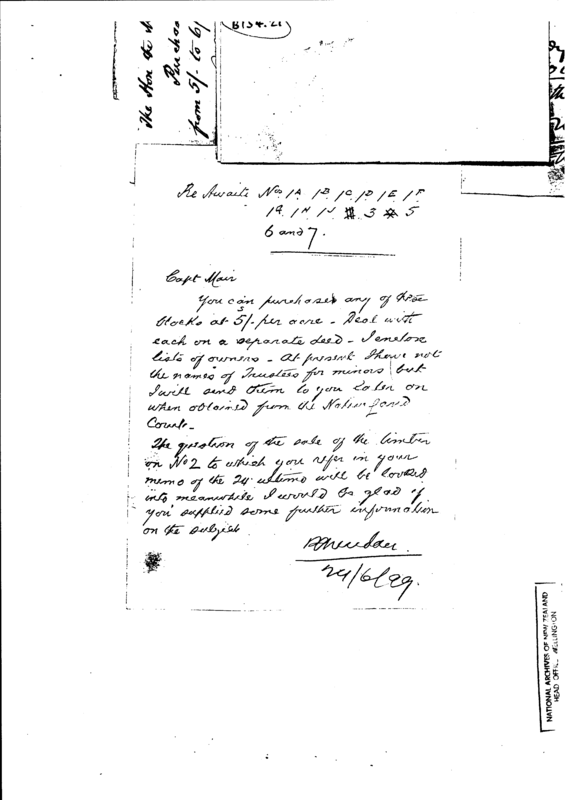 B134.21
The Hon the
Purchas
from 5/- to 6/
Re Awaiti Nos 1A 1B 1C 1D 1E 1F
1G 1H 1J 3 5
6 and 7.
Capt Mair
You can purchase any of these
blocks at 5/- per acre - Deal with
each on a separate deed - I enclose
lists of owners - At present I have not
the names of Trustees for minors but
I will send them to you later on
when obtained from the Native Land
Court -
The question of the sale of the timber
on No 2 to which you refer in your
memo of the 24 ultimo will be looked
into meanwhile I would be glad if
you supplied some further information
on the subject
P Sheridan
24/6/99.
NATIONAL ARCHIVES OF NEW ZEALAND
HEAD OFFICE WELLINGTON